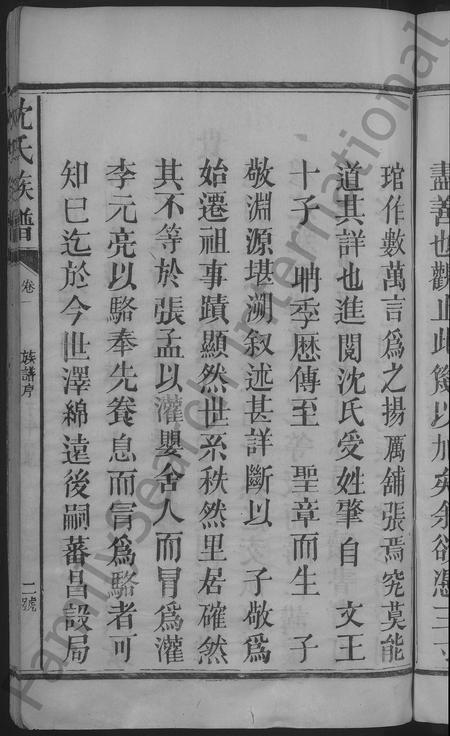 盡善也觀止此幾以加矣余欲憑三寸
琯作數萬言爲之揚厲舖張焉究莫能
道其詳也進閱沈氏受姓肇自 文王
十子 聃季歷傳至 聖章而生 子
敬淵源堪溯叙述甚詳斷以 子敬爲
始遷祖事蹟顯然世系秩然里居確然
其不等於張孟以灌嬰舍人而冒爲灌
李元亮以駱奉先養息而冒爲駱者可
知已迄於今世澤綿遠後嗣蕃昌設局
沈氏族譜
卷一
族譜序
二號
FamilySearch International